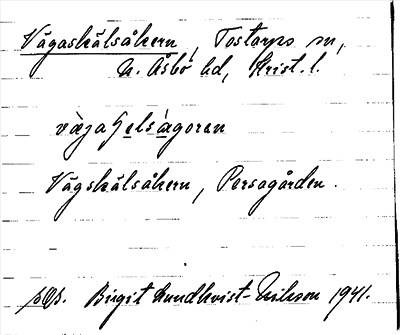 Vägaskälsåkern, Tostarps sn,
N. Åsbo hd, Krist. l.
Vägskälsåkern, Persagården.
Birgit Lundkvist-Nilsson 1941.